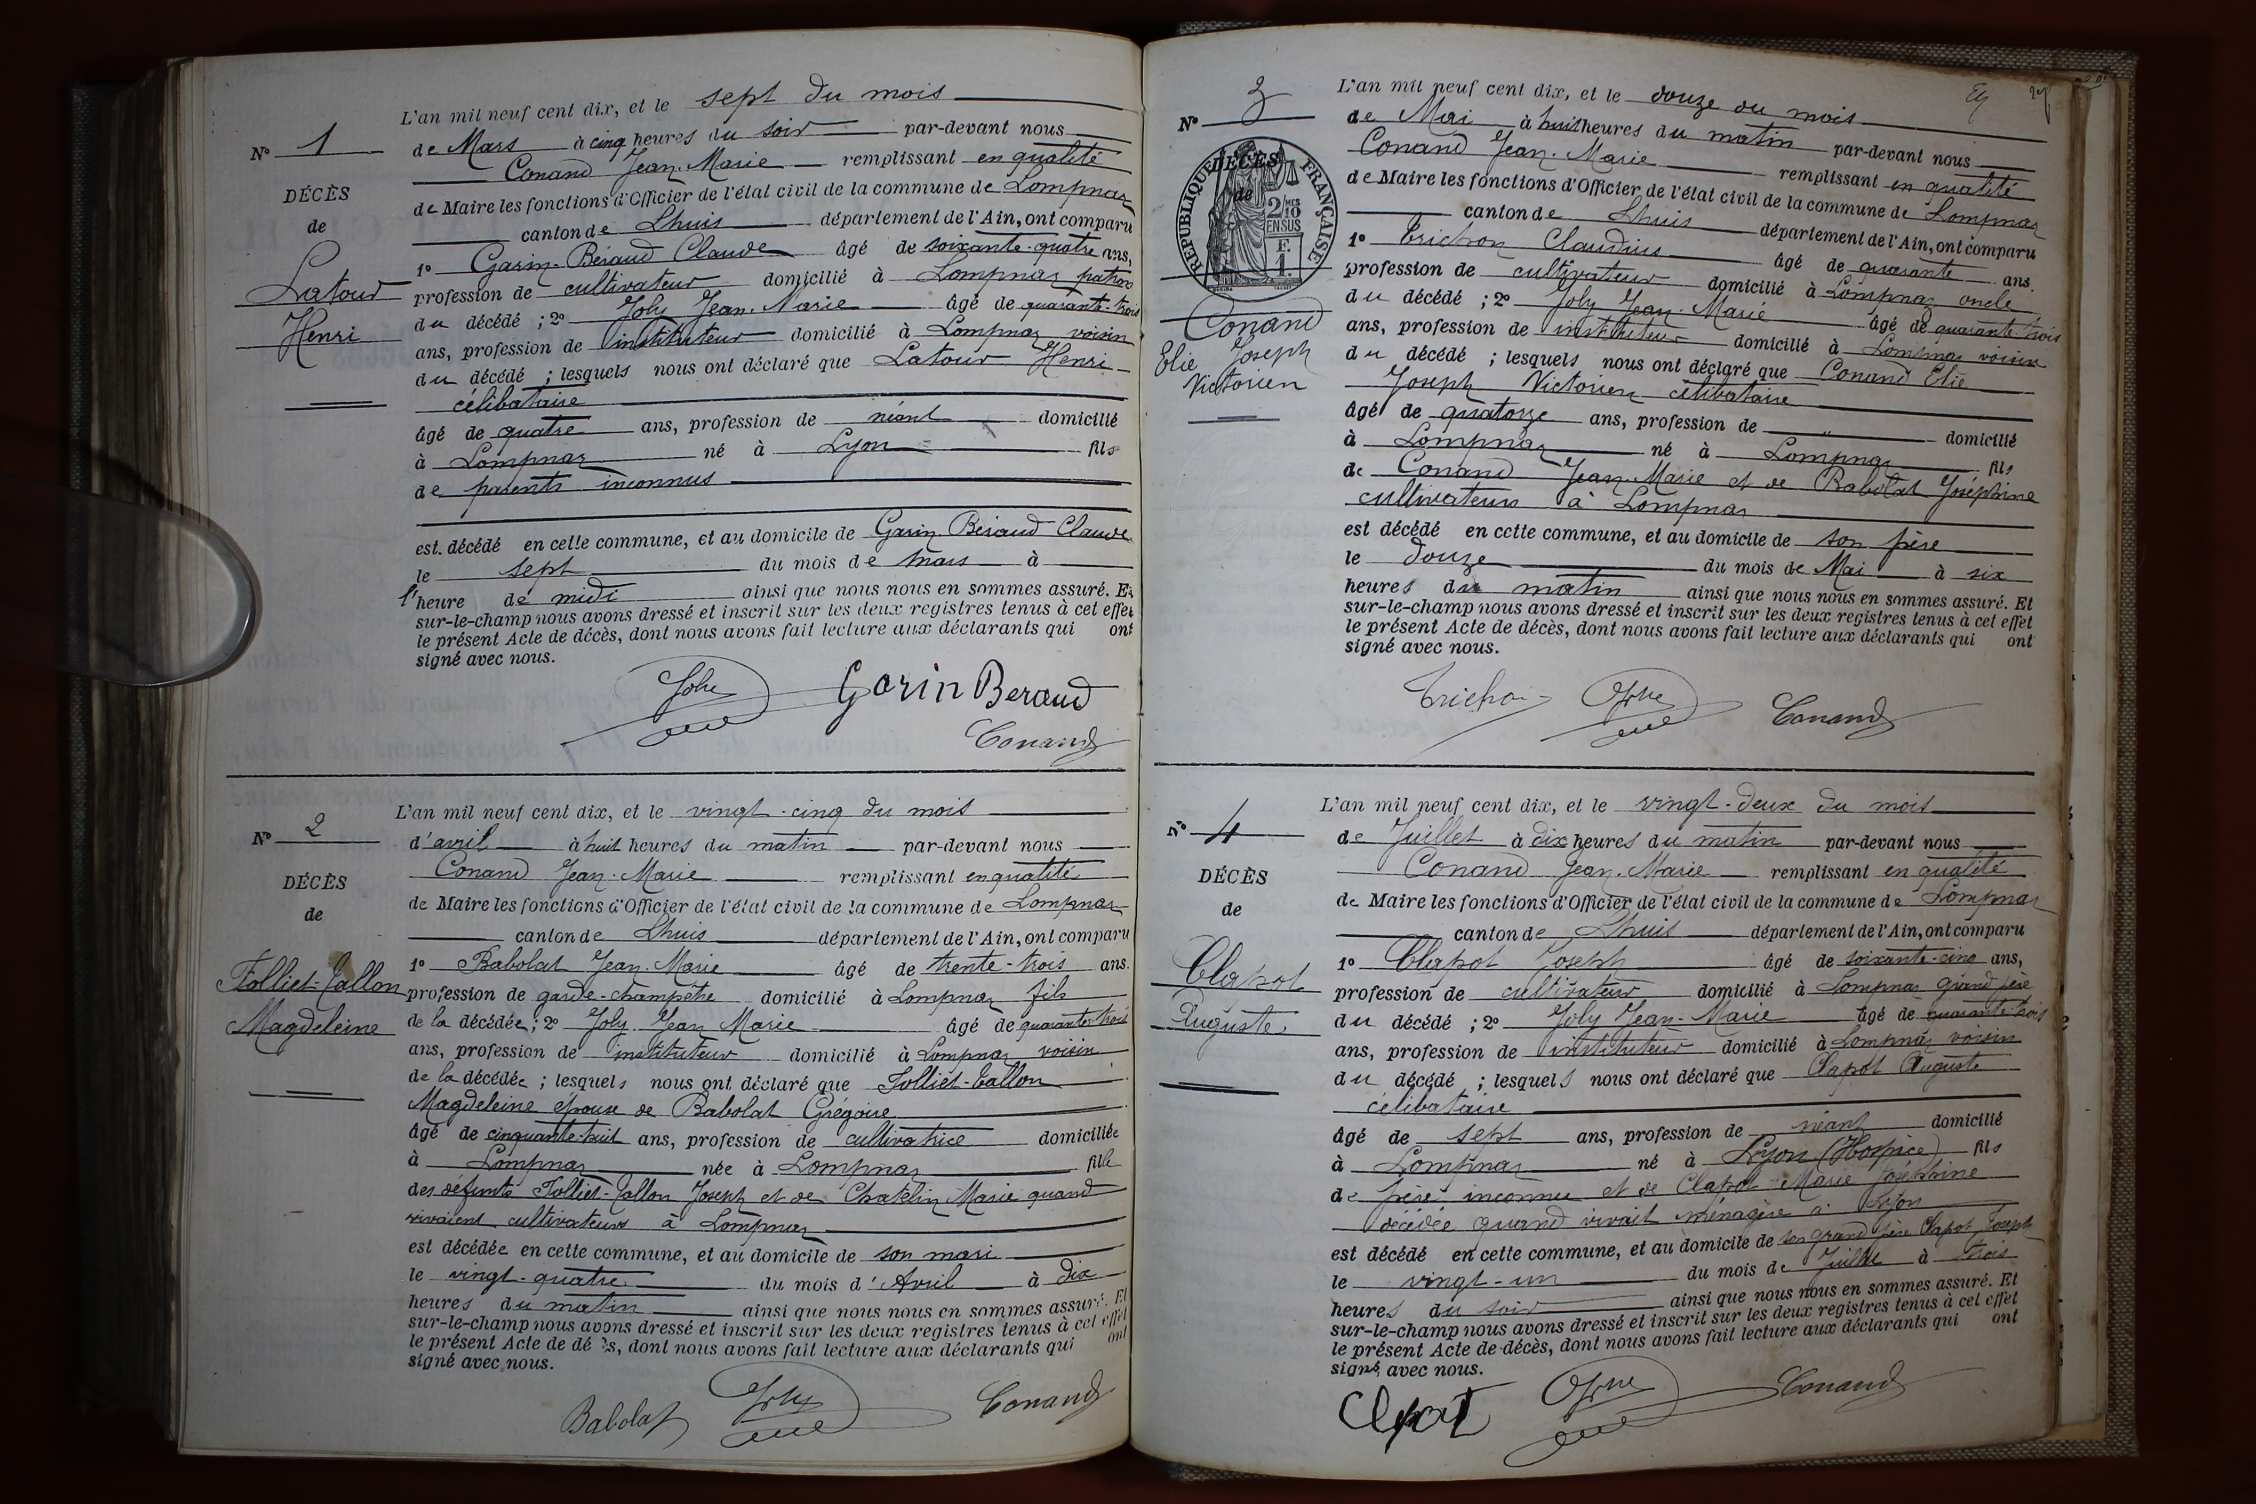 L'an mil neuf cent dix, et le sept du mois
N° 1
de Mars à cinq heures du soir par-devant nous
Conand Jean-Marie remplissant en qualité
DÉCÈS
de Maire les fonctions d'Officier de l'état civil de la commune de Lompnaz
de
canton de Lhuis département de l'Ain, ont comparu
1° Garin-Béraud Claude âgé de soixante-quatre ans,
Latour
profession de cultivateur domicilié à Lompnaz patron
Henri
du décédé ; 2° Joly Jean-Marie âgé de quarante-trois
ans, profession de instituteur domicilié à Lompnaz voisin
du décédé ; lesquels nous ont déclaré que Latour Henri
célibataire
âgé de quatre ans, profession de néant domicilié
à Lompnaz né à Lyon fils
de parents inconnus
est décédé en cette commune, et au domicile de Garin-Béraud Claude
le sept du mois de mars à
l'heure de midi ainsi que nous nous en sommes assuré. Et
sur-le-champ nous avons dressé et inscrit sur les deux registres tenus à cet effet
le présent Acte de décès, dont nous avons fait lecture aux déclarants qui ont
signé avec nous.
Joly Garin Beraud
Conand
L'an mil neuf cent dix, et le vingt-cinq du mois
N° 2
d'avril à huit heures du matin par-devant nous
Conand Jean-Marie remplissant en qualité
DÉCÈS
de Maire les fonctions d'Officier de l'état civil de la commune de Lompnaz
de
canton de Lhuis département de l'Ain, ont comparu
1° Babolat Jean-Marie âgé de trente-trois ans.
Folliet-Tallon
profession de garde-champêtre domicilié à Lompnaz fils
Magdeleine
de la décédée ; 2° Joly Jean Marie âgé de quarante-trois
ans, profession de instituteur domicilié à Lompnaz voisin
de la décédée ; lesquels nous ont déclaré que Folliet-Tallon
Magdeleine épouse de Babolat Grégoire
âgé de cinquante-huit ans, profession de cultivatrice domiciliée
à Lompnaz née à Lompnaz fille
des défunts Folliet-Tallon Joseph et de Chatelin Marie quand
vivaient cultivateurs à Lompnaz
est décédée en cette commune, et au domicile de son mari
le vingt-quatre du mois d'Avril à dix
heures du matin ainsi que nous nous en sommes assuré. Et
sur-le-champ nous avons dressé et inscrit sur les deux registres tenus à cet effet
le présent Acte de décès, dont nous avons fait lecture aux déclarants qui ont
signé avec nous.
Babolat Joly Conand
L'an mil neuf cent dix, et le douze du mois
N° 3
de Mai à huit heures du matin par-devant nous
Conand Jean-Marie remplissant en qualité
DÉCÈS
de
RÉPUBLIQUE FRANÇAISE
2/10 MES
EN SUS
F.
1.
de Maire les fonctions d'Officier de l'état civil de la commune de Lompnaz
canton de Lhuis département de l'Ain, ont comparu
1° Trichon Claudius âgé de quarante ans.
profession de cultivateur domicilié à Lompnaz oncle
du décédé ; 2° Joly Jean-Marie âgé de quarante-trois
Conand
Elie Joseph
Victorien
ans, profession de instituteur domicilié à Lompnaz voisin
du décédé ; lesquels nous ont déclaré que Conand Elie
Joseph Victorien célibataire
âgé de quatorze ans, profession de " domicilié
à Lompnaz né à Lompnaz fils
de Conand Jean-Marie et de Babolat Joséphine
cultivateurs à Lompnaz
est décédé en cette commune, et au domicile de son père
le douze du mois de Mai à six
heures du matin ainsi que nous nous en sommes assuré. Et
sur-le-champ nous avons dressé et inscrit sur les deux registres tenus à cet effet
le présent Acte de décès, dont nous avons fait lecture aux déclarants qui ont
signé avec nous.
Trichon Joly Conand
L'an mil neuf cent dix, et le vingt-deux du mois
N° 4
de Juillet à dix heures du matin par-devant nous
Conand Jean-Marie remplissant en qualité
DÉCÈS
de Maire les fonctions d'Officier de l'état civil de la commune de Lompnaz
de
canton de Lhuis département de l'Ain, ont comparu
1° Clapot Joseph âgé de soixante-cinq ans,
Clapot
profession de cultivateur domicilié à Lompnaz grand père
Auguste
du décédé ; 2° Joly Jean-Marie âgé de quarante-trois
ans, profession de instituteur domicilié à Lompnaz voisin
du décédé ; lesquels nous ont déclaré que Clapot Auguste
célibataire
âgé de sept ans, profession de néant domicilié
à Lompnaz né à Lyon (Hospice) fils
de père inconnu et de Clapot Marie Joséphine
décédée quand vivait ménagère à Lyon
est décédé en cette commune, et au domicile de son grand père Clapot Joseph
le vingt-un du mois de Juillet à trois
heures du soir ainsi que nous nous en sommes assuré. Et
sur-le-champ nous avons dressé et inscrit sur les deux registres tenus à cet effet
le présent Acte de décès, dont nous avons fait lecture aux déclarants qui ont
signé avec nous.
Clapot Joly Conand